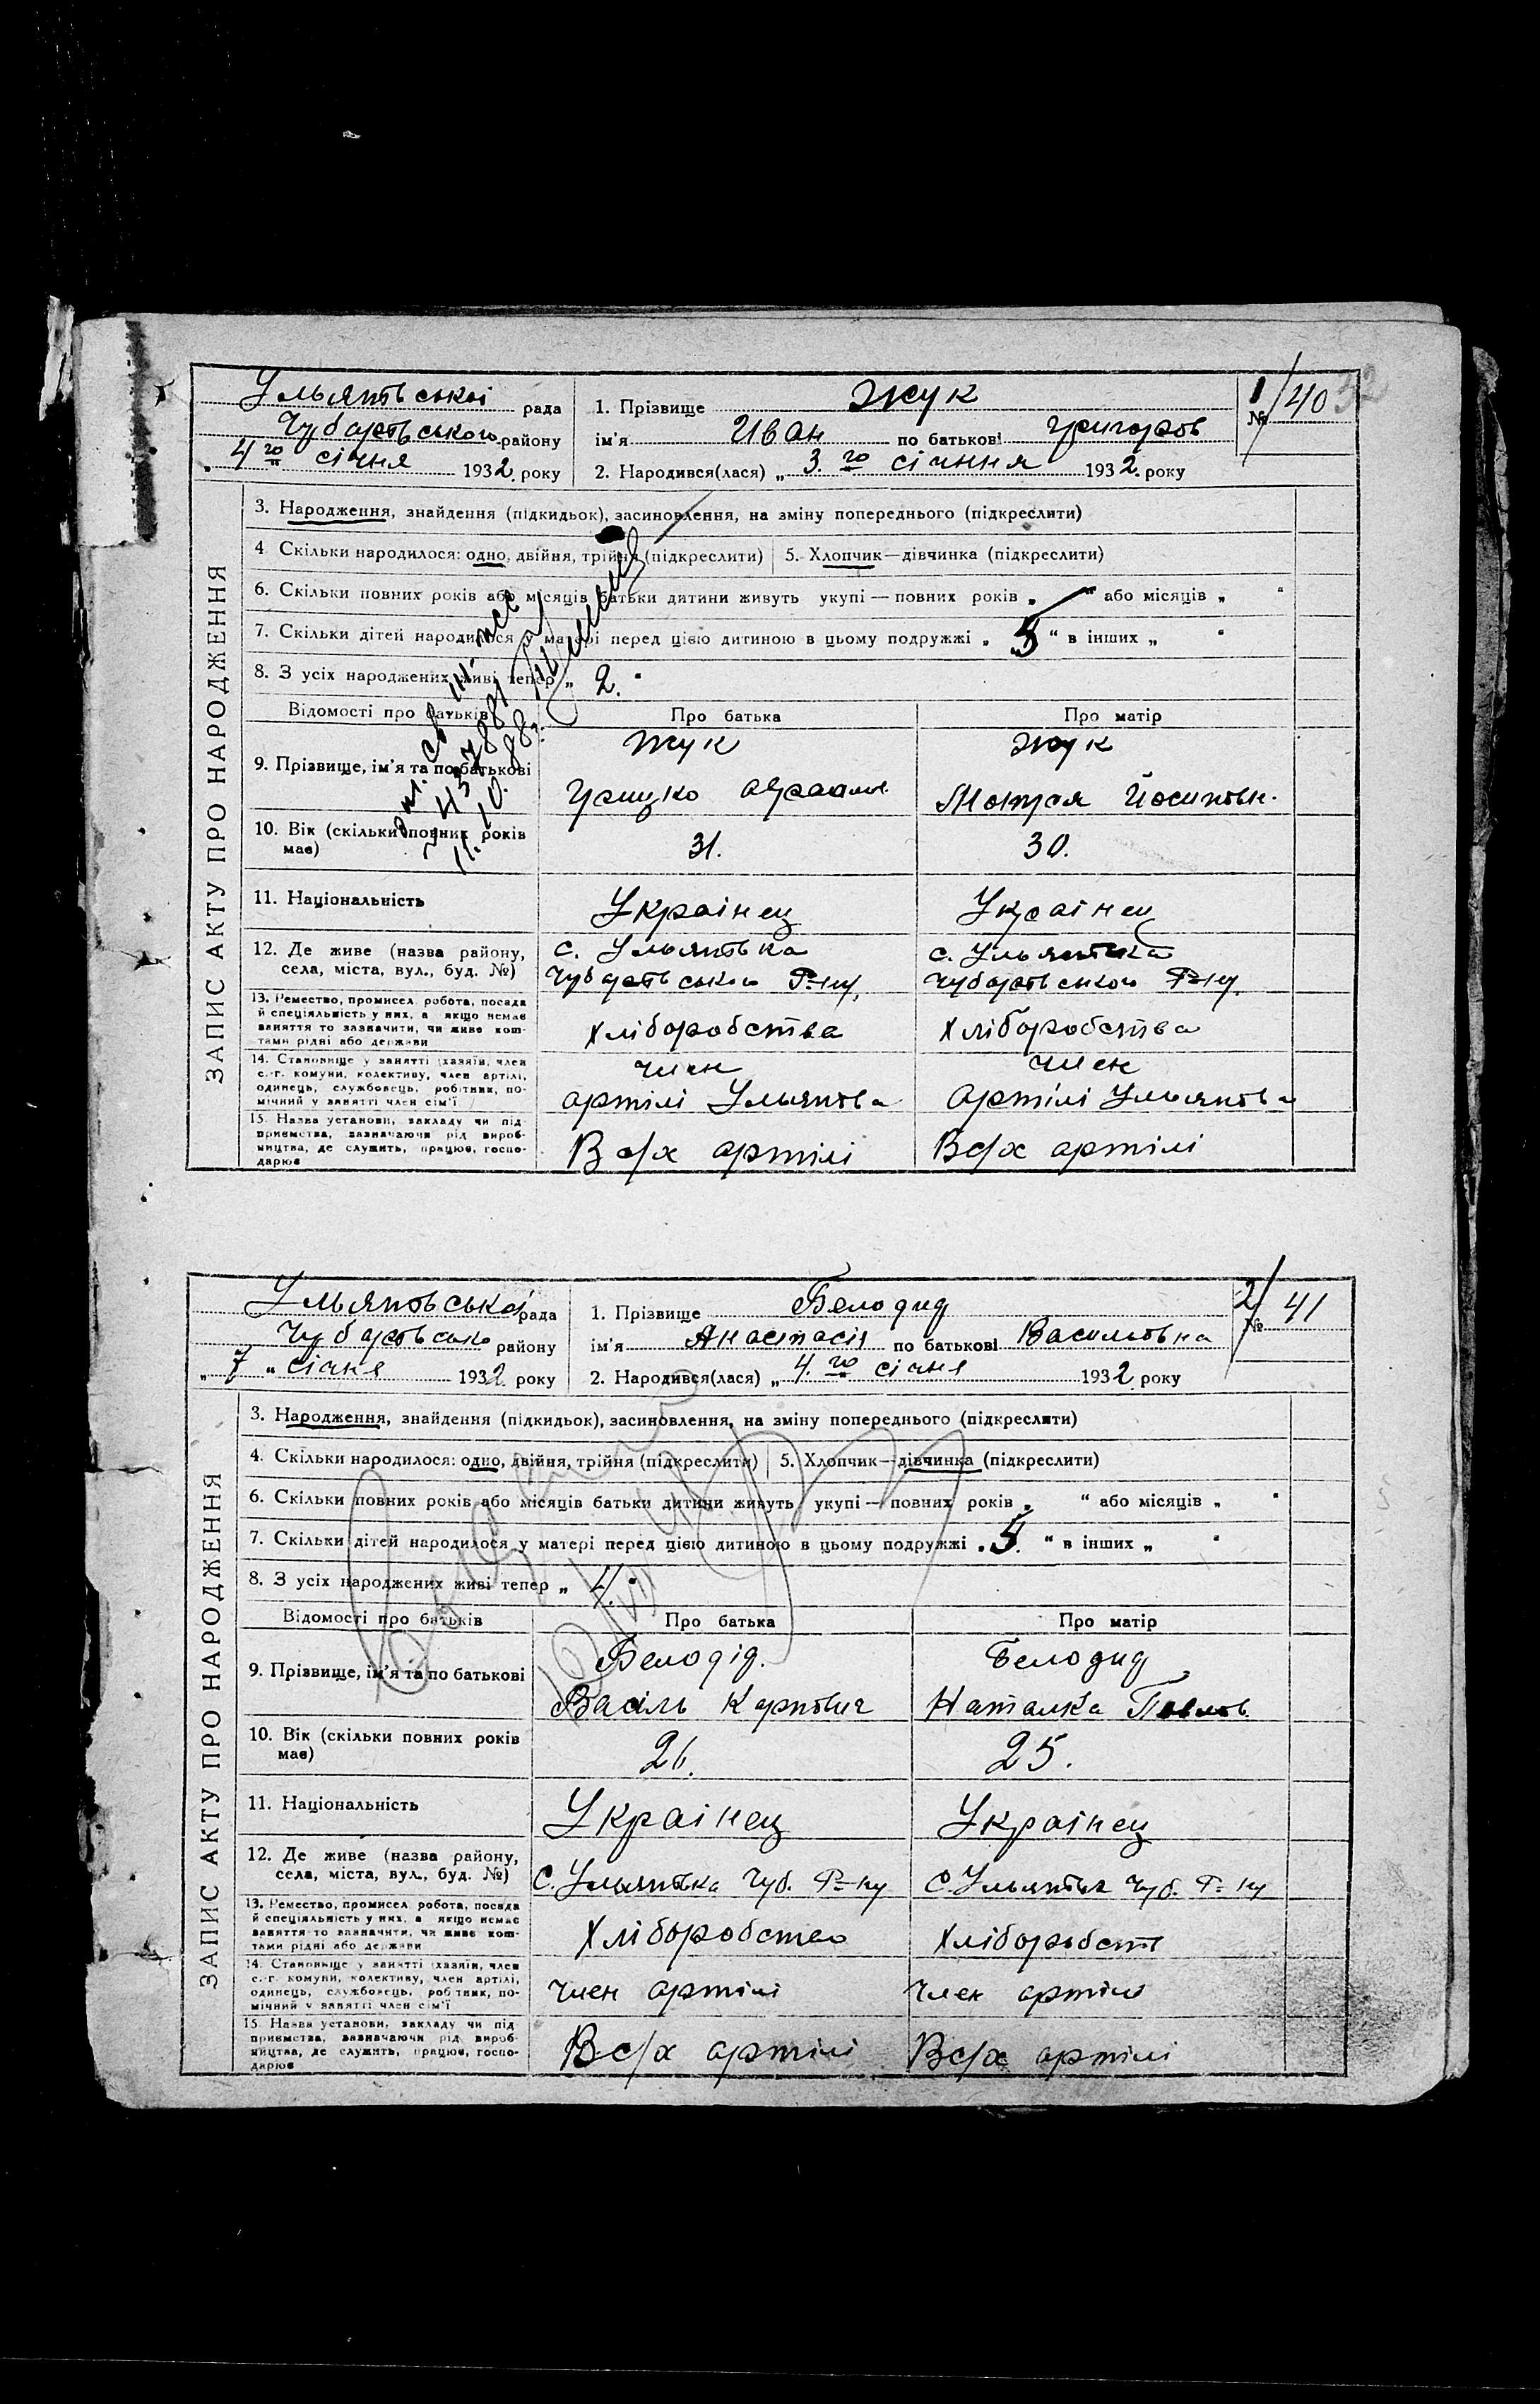 Ульяновської рада
Чубарівського району
4 го січня 1932. року
1. Прізвище Жук
ім'я Иван по батькові Григоров
2. Народився(лася) „ 3. го січння 1932. року
1/40
№
ЗАПИС АКТУ ПРО НАРОДЖЕННЯ
3. Народження, знайдення (підкидьок), засиновлення, на зміну попереднього (підкреслити)
4. Скільки народилося: одно, двійня, трійня (підкреслити) 5. Хлопчик—дівчинка (підкреслити)
6. Скільки повних років або місяців батьки дитини живуть укупі — повних років „ “ або місяців „ “
7. Скільки дітей народилося у матері перед цією дитиною в цьому подружжі „ 5 “ в інших „ “
8. З усіх народжених живі тепер „ 2. “
Відомості про батьків Про батька Про матір
9. Прізвище, ім'я та по батькові
Жук
Грицко
Жук
Мотря Йосиповн.
10. Вік (скільки повних років має) 31. 30.
11. Національність Українец Українец
12. Де живе (назва району, села, міста, вул., буд. №)
с. Ульяновка
Чубарівського Р-ну,
с. Ульяновка
Чубарівського Р-ну.
13. Ремество, промисел, робота, посада й спеціяльність у них, а якщо немає заняття то зазначити, чи живе коштами рідні або держави
Хліборобства Хліборобства
14. Становище у занятті (хазяїн, член с.-г. комуни, колективу, член артілі, одинець, службовець, робітник, помічний у занятті член сім'ї
член
артілі Ульянова
член
артілі Ульянова
15. Назва установи, закладу чи підприємства, зазначаючи рід виробництва, де служить, працює, господарює
В с/х артілі В с/х артілі
Ульяновської рада
Чубарівсько району
„ 7 “ січня 1932. року
1. Прізвище Белодид
ім'я Анастасія по батькові Васильовна
2. Народився(лася) „ 4. го січня 1932 року
2/41
№
ЗАПИС АКТУ ПРО НАРОДЖЕННЯ
3. Народження, знайдення (підкидьок), засиновлення, на зміну попереднього (підкреслити)
4. Скільки народилося: одно, двійня, трійня (підкреслити) 5. Хлопчик—дівчинка (підкреслити)
6. Скільки повних років або місяців батьки дитини живуть укупі — повних років „ “ або місяців „ “
7. Скільки дітей народилося у матері перед цією дитиною в цьому подружжі „ “ в інших „ “
8. З усіх народжених живі тепер „
Відомості про батьків Про батька Про матір
9. Прізвище, ім'я та по батькові
Белодід.
Василь Карпович
Белодид
Наталка Павлов.
10. Вік (скільки повних років має) 26. 25.
11. Національність Українец Українец
12. Де живе (назва району, села, міста, вул., буд. №)
С. Ульяновка Чуб. Р-ну С. Ульяновка Чуб. Р-ну
13. Ремество, промисел, робота, посада й спеціяльність у них, а якщо немає заняття то зазначити, чи живе коштами рідні або держави
Хліборобство Хліборобств
14. Становище у занятті (хазяїн, член с.-г. комуни, колективу, член артілі, одинець, службовець, робітник, помічний у занятті член сім'ї
член артілі член артілі
15. Назва установи, закладу чи підприємства, зазначаючи рід виробництва, де служить, працює, господарює
В с/х артілі В с/х артілі